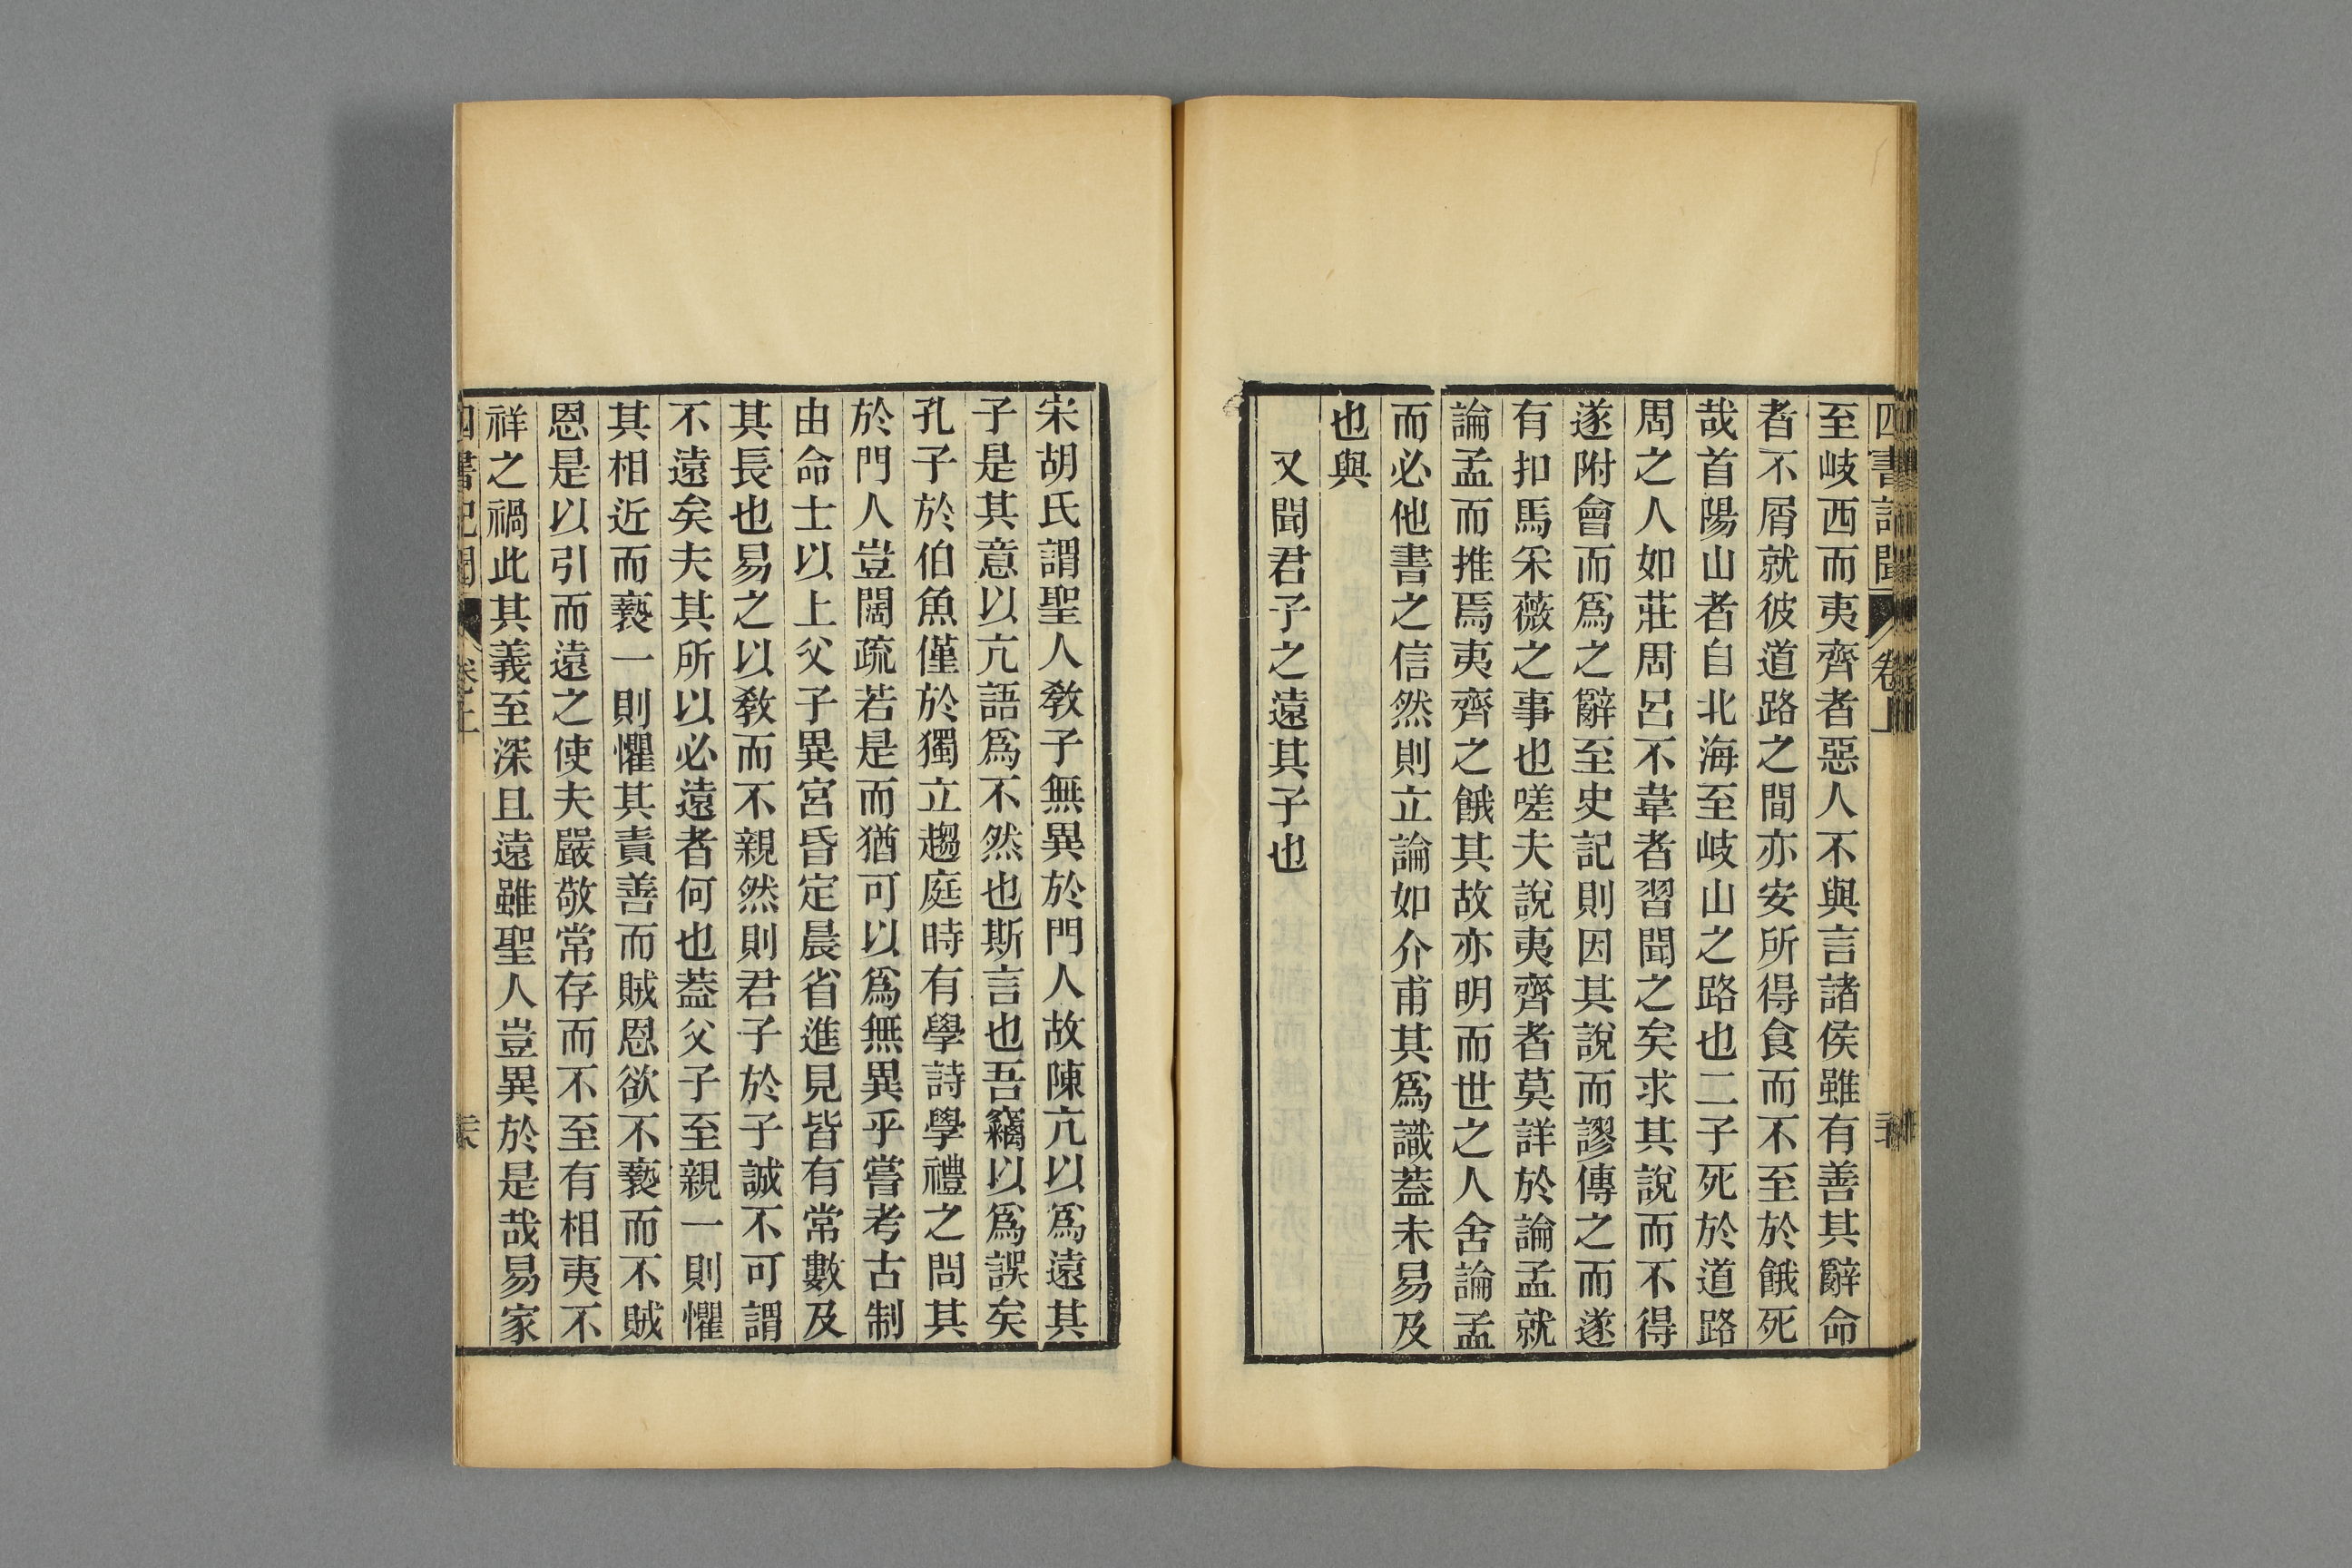 四書記聞 卷上
至岐西而夷齊者惡人不與言諸侯雖有善其辭命
者不屑就彼道路之間亦安所得食而不至於餓死
哉首陽山者自北海至岐山之路也二子死於道路
周之人如莊周呂不韋者習聞之矣求其說而不得
遂附會而爲之辭至史記則因其說而謬傳之而遂
有扣馬采薇之事也嗟夫說夷齊者莫詳於論孟就
論孟而推焉夷齊之餓其故亦明而世之人舍論孟
而必他書之信然則立論如介甫其爲識葢未易及
也與
又聞君子之遠其子也
宋胡氏謂聖人敎子無異於門人故陳亢以爲遠其
子是其意以亢語爲不然也斯言也吾竊以爲誤矣
孔子於伯魚僅於獨立趨庭時有學詩學禮之問其
於門人豈闊疏若是而猶可以爲無異乎嘗考古制
由命士以上父子異宮昏定晨省進見皆有常數及
其長也易之以敎而不親然則君子於子誠不可謂
不遠矣夫其所以必遠者何也葢父子至親一則懼
其相近而褻一則懼其責善而賊恩欲不褻而不賊
恩是以引而遠之使夫嚴敬常存而不至有相夷不
祥之禍此其義至深且遠雖聖人豈異於是哉易家
四書記聞 卷上